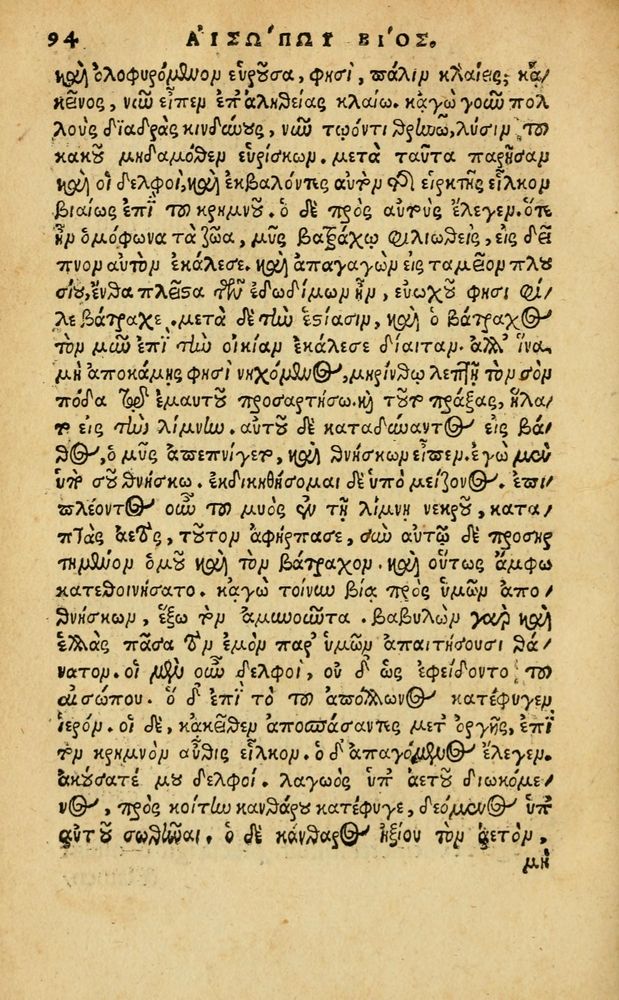 94 ΑΙΣΩΠΟΥ ΒΙΟΣ.
καὶ ὀλοφυρόμενον εὑροῦσα, φησὶ, πάλιν κλαίεις; κἀ/
κεῖνος, νῦν εἶπεν ἐπ' ἀληθείας κλαίω. κἀγὼ γοῦν πολ
λοὺς διαδρὰς κινδύνους, νῦν τῷ ὄντι θρηνῶ, λύσιν τοῦ
κακοῦ μηδαμόθεν εὑρίσκων. μετὰ ταῦτα παρῆσαν
καὶ οἱ δελφοὶ, καὶ ἐκβαλόντες αὐτὸν τῆς εἱρκτῆς εἷλκον
βιαίως ἐπὶ τοῦ κρημνοῦ. ὁ δὲ πρὸς αὐτοὺς ἔλεγεν. ὅτε
ἦν ὁμόφωνα τὰ ζῶα, μῦς βατράχῳ φιλιωθεὶς, εἰς δεῖ
πνον αὐτὸν ἐκάλεσε. καὶ ἀπαγαγὼν εἰς ταμεῖον πλου
σίου, ἔνθα πλεῖστα τῶν ἐδωδίμων ἦν, εὐωχοῦ φησι φί/
λε βάτραχε. μετὰ δὲ τὴν ἑστίασιν, καὶ ὁ βάτραχος
τὸν μῦν ἐπὶ τὴν οἰκίαν ἐκάλεσε δίαιταν. ἀλλ' ἵνα
μὴ ἀποκάμης φησὶ νηχόμενος, μηρίνθῳ λεπτῇ τὸν σὸν
πόδα τῷ ἐμαυτοῦ προσαρτήσω. καὶ τοῦτο πράξας, ἥλα/
το εἰς τὴν λίμνην. αὐτοῦ δὲ καταδύναντος εἰς βά/
θος, ὁ μῦς ἀπεπνίγετο, καὶ θνήσκων εἶπεν. ἐγὼ μὲν
ὑπὸ σοῦ θνήσκω. ἐκδικηθήσομαι δὲ ὑπὸ μείζονος. ἐπι/
πλέοντος οὖν τοῦ μυὸς ἐν τῇ λίμνῃ νεκροῦ, κατα/
πτὰς ἀετὸς, τοῦτον ἀφήρπασε, σὺν αὐτῷ δὲ προσηρ
τημένον ὁμοῦ καὶ τὸν βάτραχον. καὶ οὕτως ἄμφω
κατεθοινήσατο. κἀγὼ τοίνυν βίᾳ πρὸς ὑμῶν ἀπο/
θνήσκων, ἕξω τὸν ἀμυνοῦντα. βαβυλὼν γὰρ καὶ
ἑλλὰς πᾶσα τὸν ἐμὸν παρ' ὑμῶν ἀπαιτήσουσι θά/
νατον. οἱ μὲν οὖν δελφοὶ, οὐ δ' ὣς ἐφείδοντο τοῦ
αἰσώπου. ὁ δ' ἐπὶ τὸ τοῦ ἀπόλλωνος κατέφυγεν
ἱερόν. οἱ δὲ, κἀκεῖθεν ἀποσπάσαντες μετ' ὀργῆς, ἐπὶ
τὸν κρημνὸν αὖθις εἷλκον. ὁ δ' ἀπαγόμενος ἔλεγεν.
ἀκούσατέ μου δελφοί. λαγωὸς ὑπ' ἀετοῦ διωκόμε/
νος, πρὸς κοίτην κανθάρου κατέφυγε, δεόμενος ὑπ'
αὐτοῦ σωθῆναι. ὁ δὲ κάνθαρος ἠξίου τὸν ἀετὸν,
μὴ